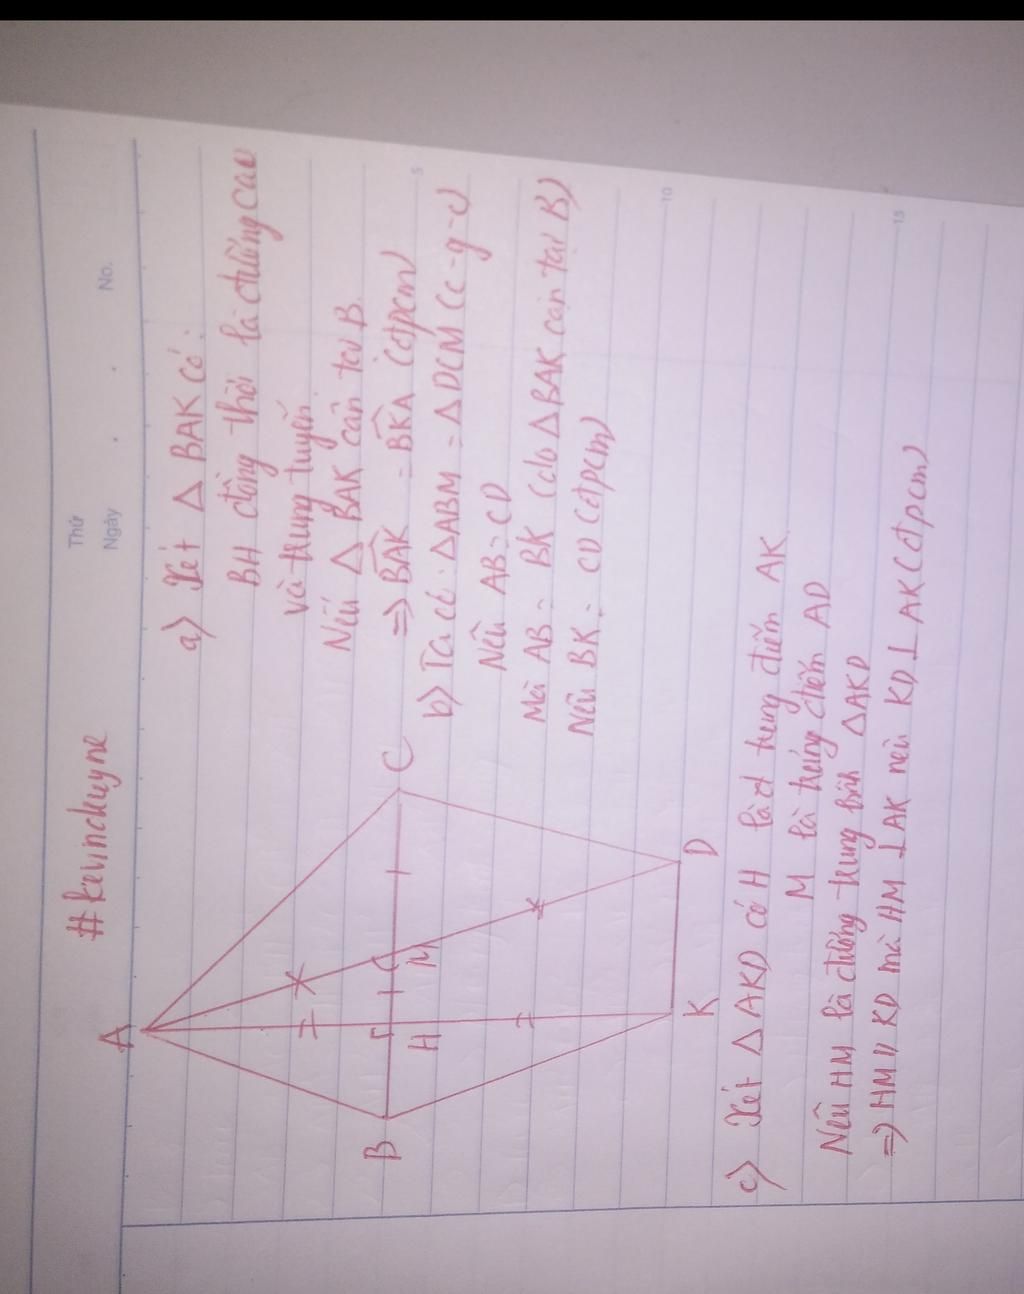 Thứ
Ngày . . No.
#kevinchuyne
a) Xét △ BAK có:
BH đồng thời là đường cao
và trung tuyến
Nên △ BAK cân tại B
=> BAK = BKA (đpcm)
b) Ta có: △ABM = △DCM (c-g-c)
Nên AB = CD
Mà AB = BK (do △BAK cân tại B)
Nên BK = CD (đpcm)
A
B
H
M
C
K
D
c) Xét △ AKD có H là trung điểm AK
M là trung điểm AD
Nên HM là đường trung bình △AKD
=> HM // KD mà HM ⊥ AK nên KD ⊥ AK (đpcm)
5
10
15